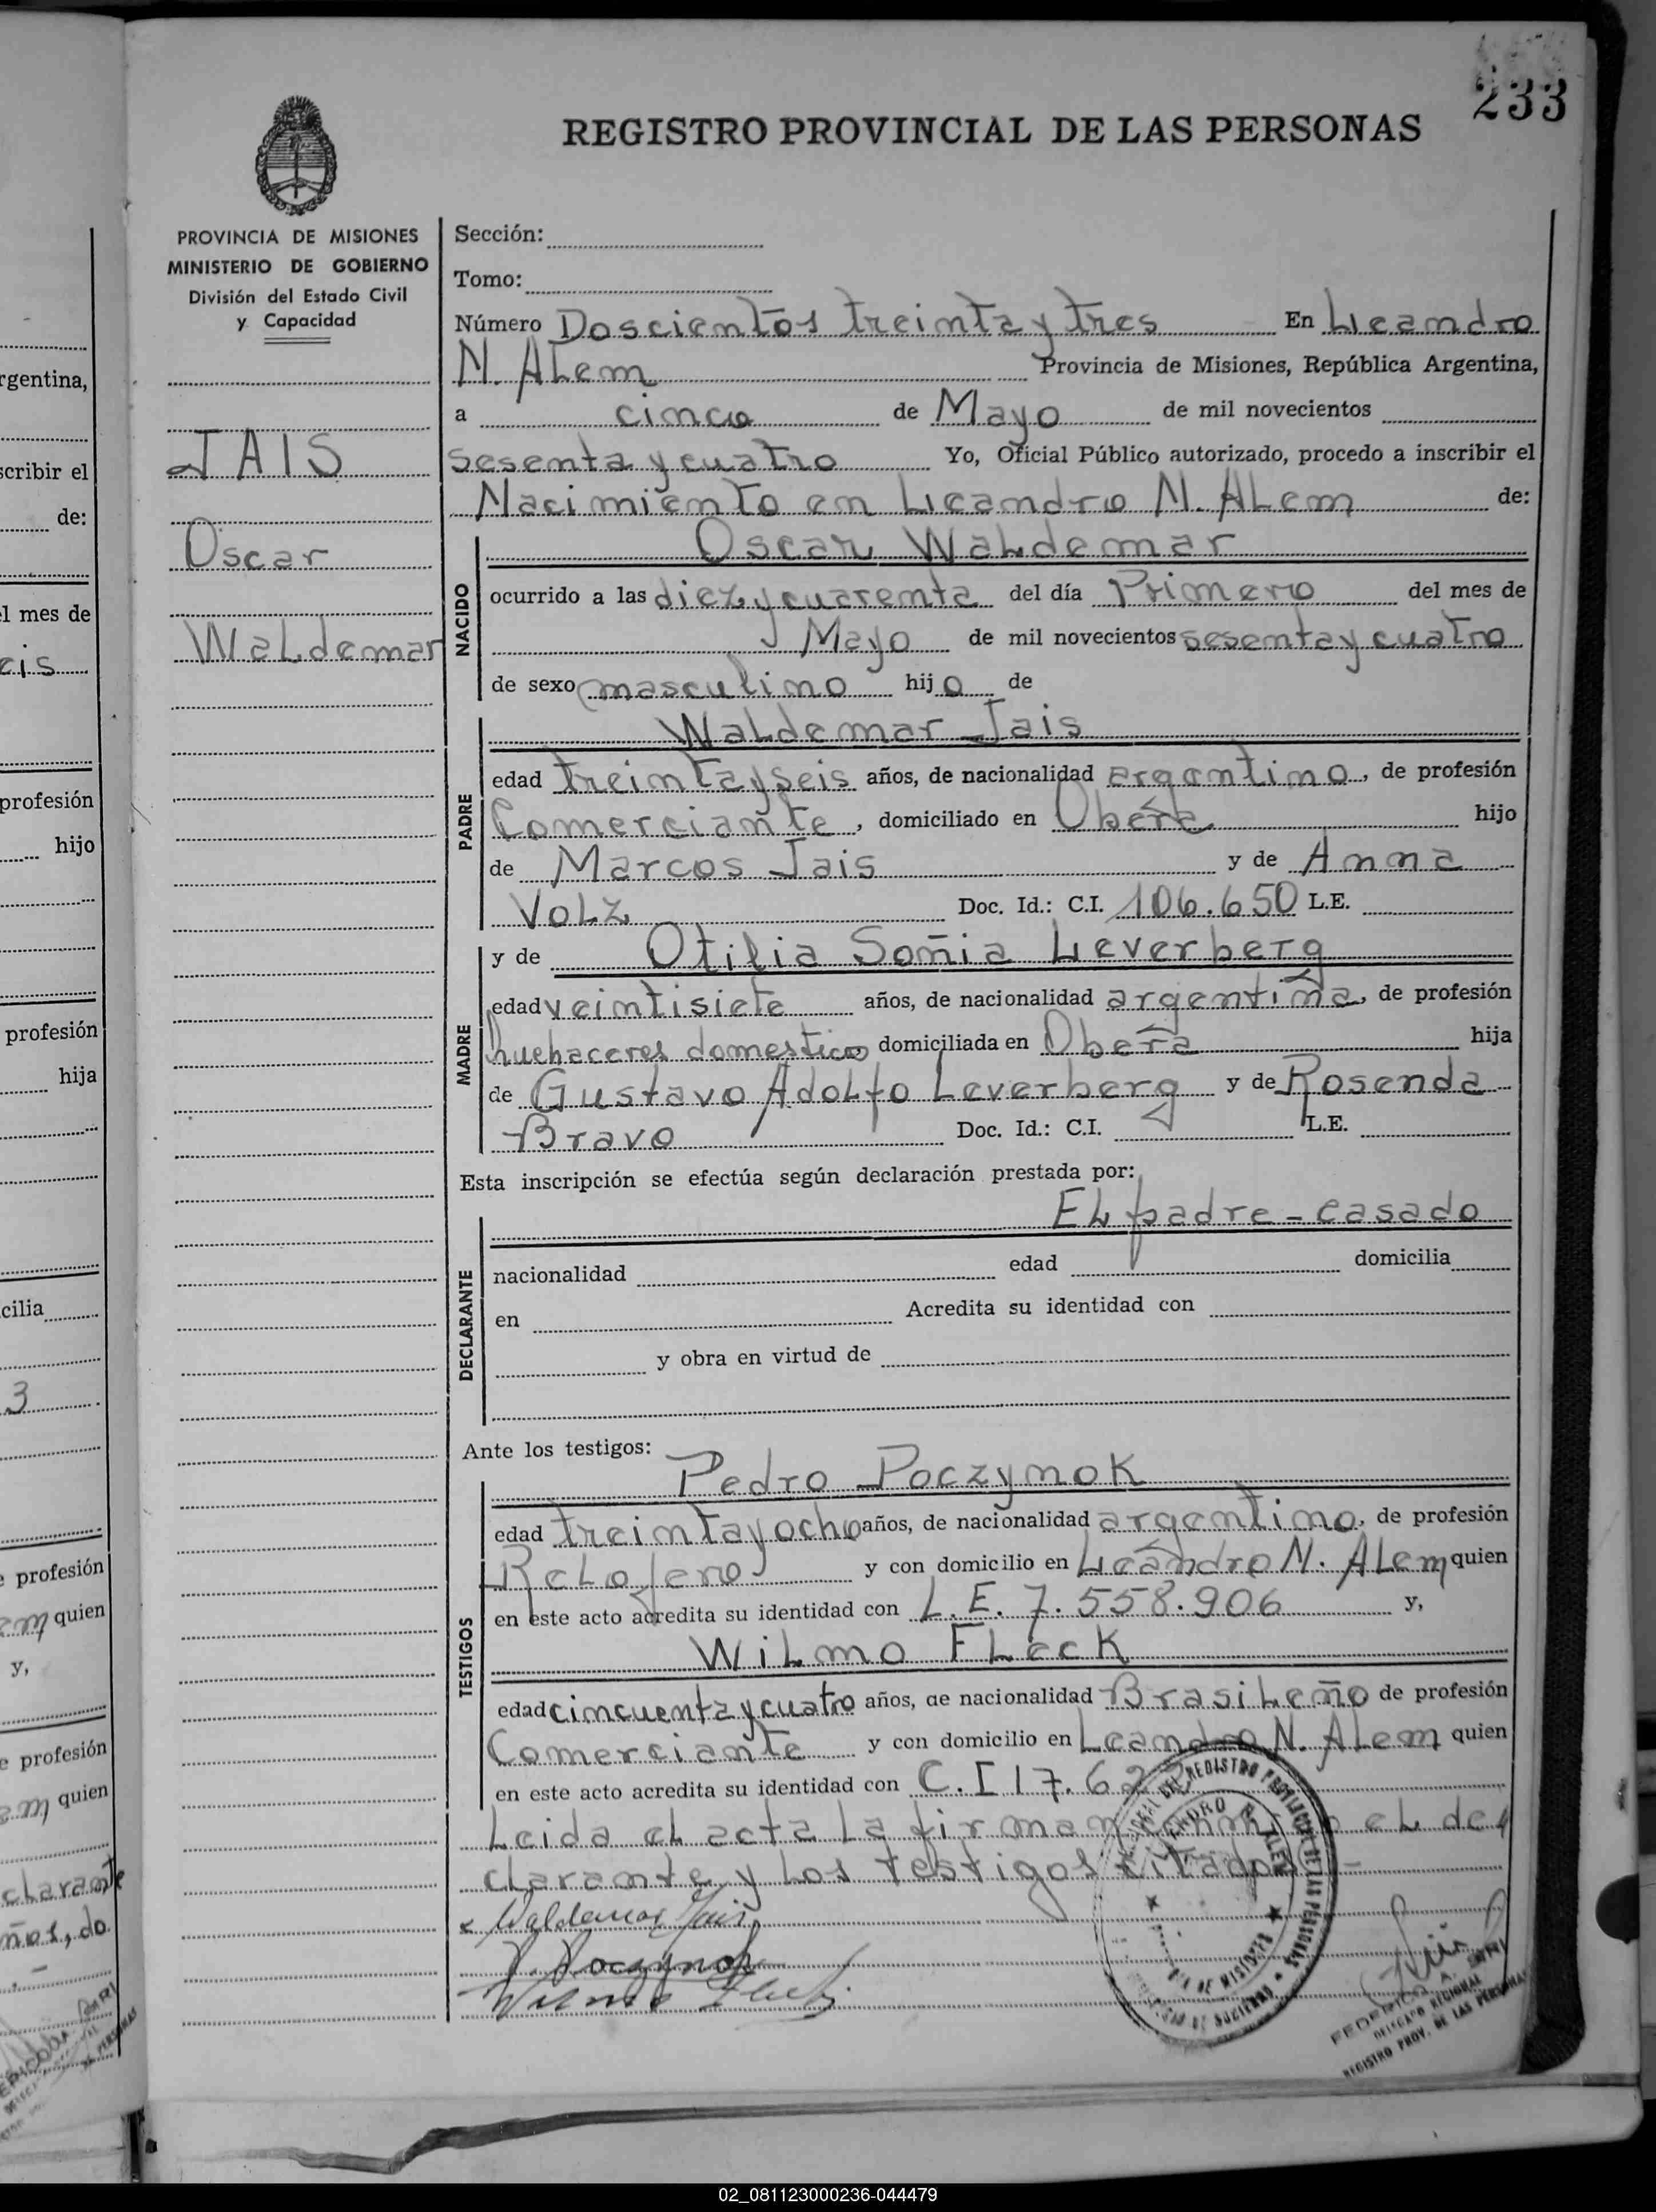 233
REGISTRO PROVINCIAL DE LAS PERSONAS
PROVINCIA DE MISIONES
MINISTERIO DE GOBIERNO
División del Estado Civil
y Capacidad
JAIS
Oscar
Waldemar
Sección:
Tomo:
Número Doscientos treinta y tres En Leandro
N. Alem Provincia de Misiones, República Argentina,
a cinco de Mayo de mil novecientos
sesenta y cuatro Yo, Oficial Público autorizado, procedo a inscribir el
Nacimiento en Leandro N. Alem de:
NACIDO
Oscar Waldemar
ocurrido a las diez y cuarenta del día Primero del mes de
Mayo de mil novecientos sesenta y cuatro
de sexo masculino hijo de
PADRE
Waldemar Jais
edad treinta y seis años, de nacionalidad argentino, de profesión
Comerciante, domiciliado en Oberá hijo
de Marcos Jais y de Anna
Volz Doc. Id.: C.I. 106.650 L.E.
MADRE
y de Otilia Soñia Leverberg
edad veintisiete años, de nacionalidad argentiña, de profesión
huehaceres domestico domiciliada en Oberá hija
de Gustavo Adolfo Leverberg y de Rosenda
Bravo Doc. Id.: C.I. L.E.
Esta inscripción se efectúa según declaración prestada por:
DECLARANTE
El padre - casado
nacionalidad edad domicilia
en Acredita su identidad con
y obra en virtud de
Ante los testigos:
TESTIGOS
Pedro Poczynok
edad treinta y ocho años, de nacionalidad argentino, de profesión
Relojero y con domicilio en Leandro N. Alem quien
en este acto acredita su identidad con L.E. 7.558.906 y,
Wilmo Fleck
edad cincuenta y cuatro años, de nacionalidad Brasileño de profesión
Comerciante y con domicilio en Leandro N. Alem quien
en este acto acredita su identidad con C.I 17.62
Leida el acta la firman el de
clarante y los testigos citados -
Waldemar Jais
P. Poczynok
Wilmo Fleck
FEDERICO A.
DELEGADO REGIONAL
REGISTRO PROV. DE LAS PERSONAS
rgentina,
scribir el
de:
el mes de
eis
profesión
hijo
profesión
hija
cilia
3
e profesión
em quien
y,
e profesión
em quien
clarante
ños, do
02_081123000236-044479